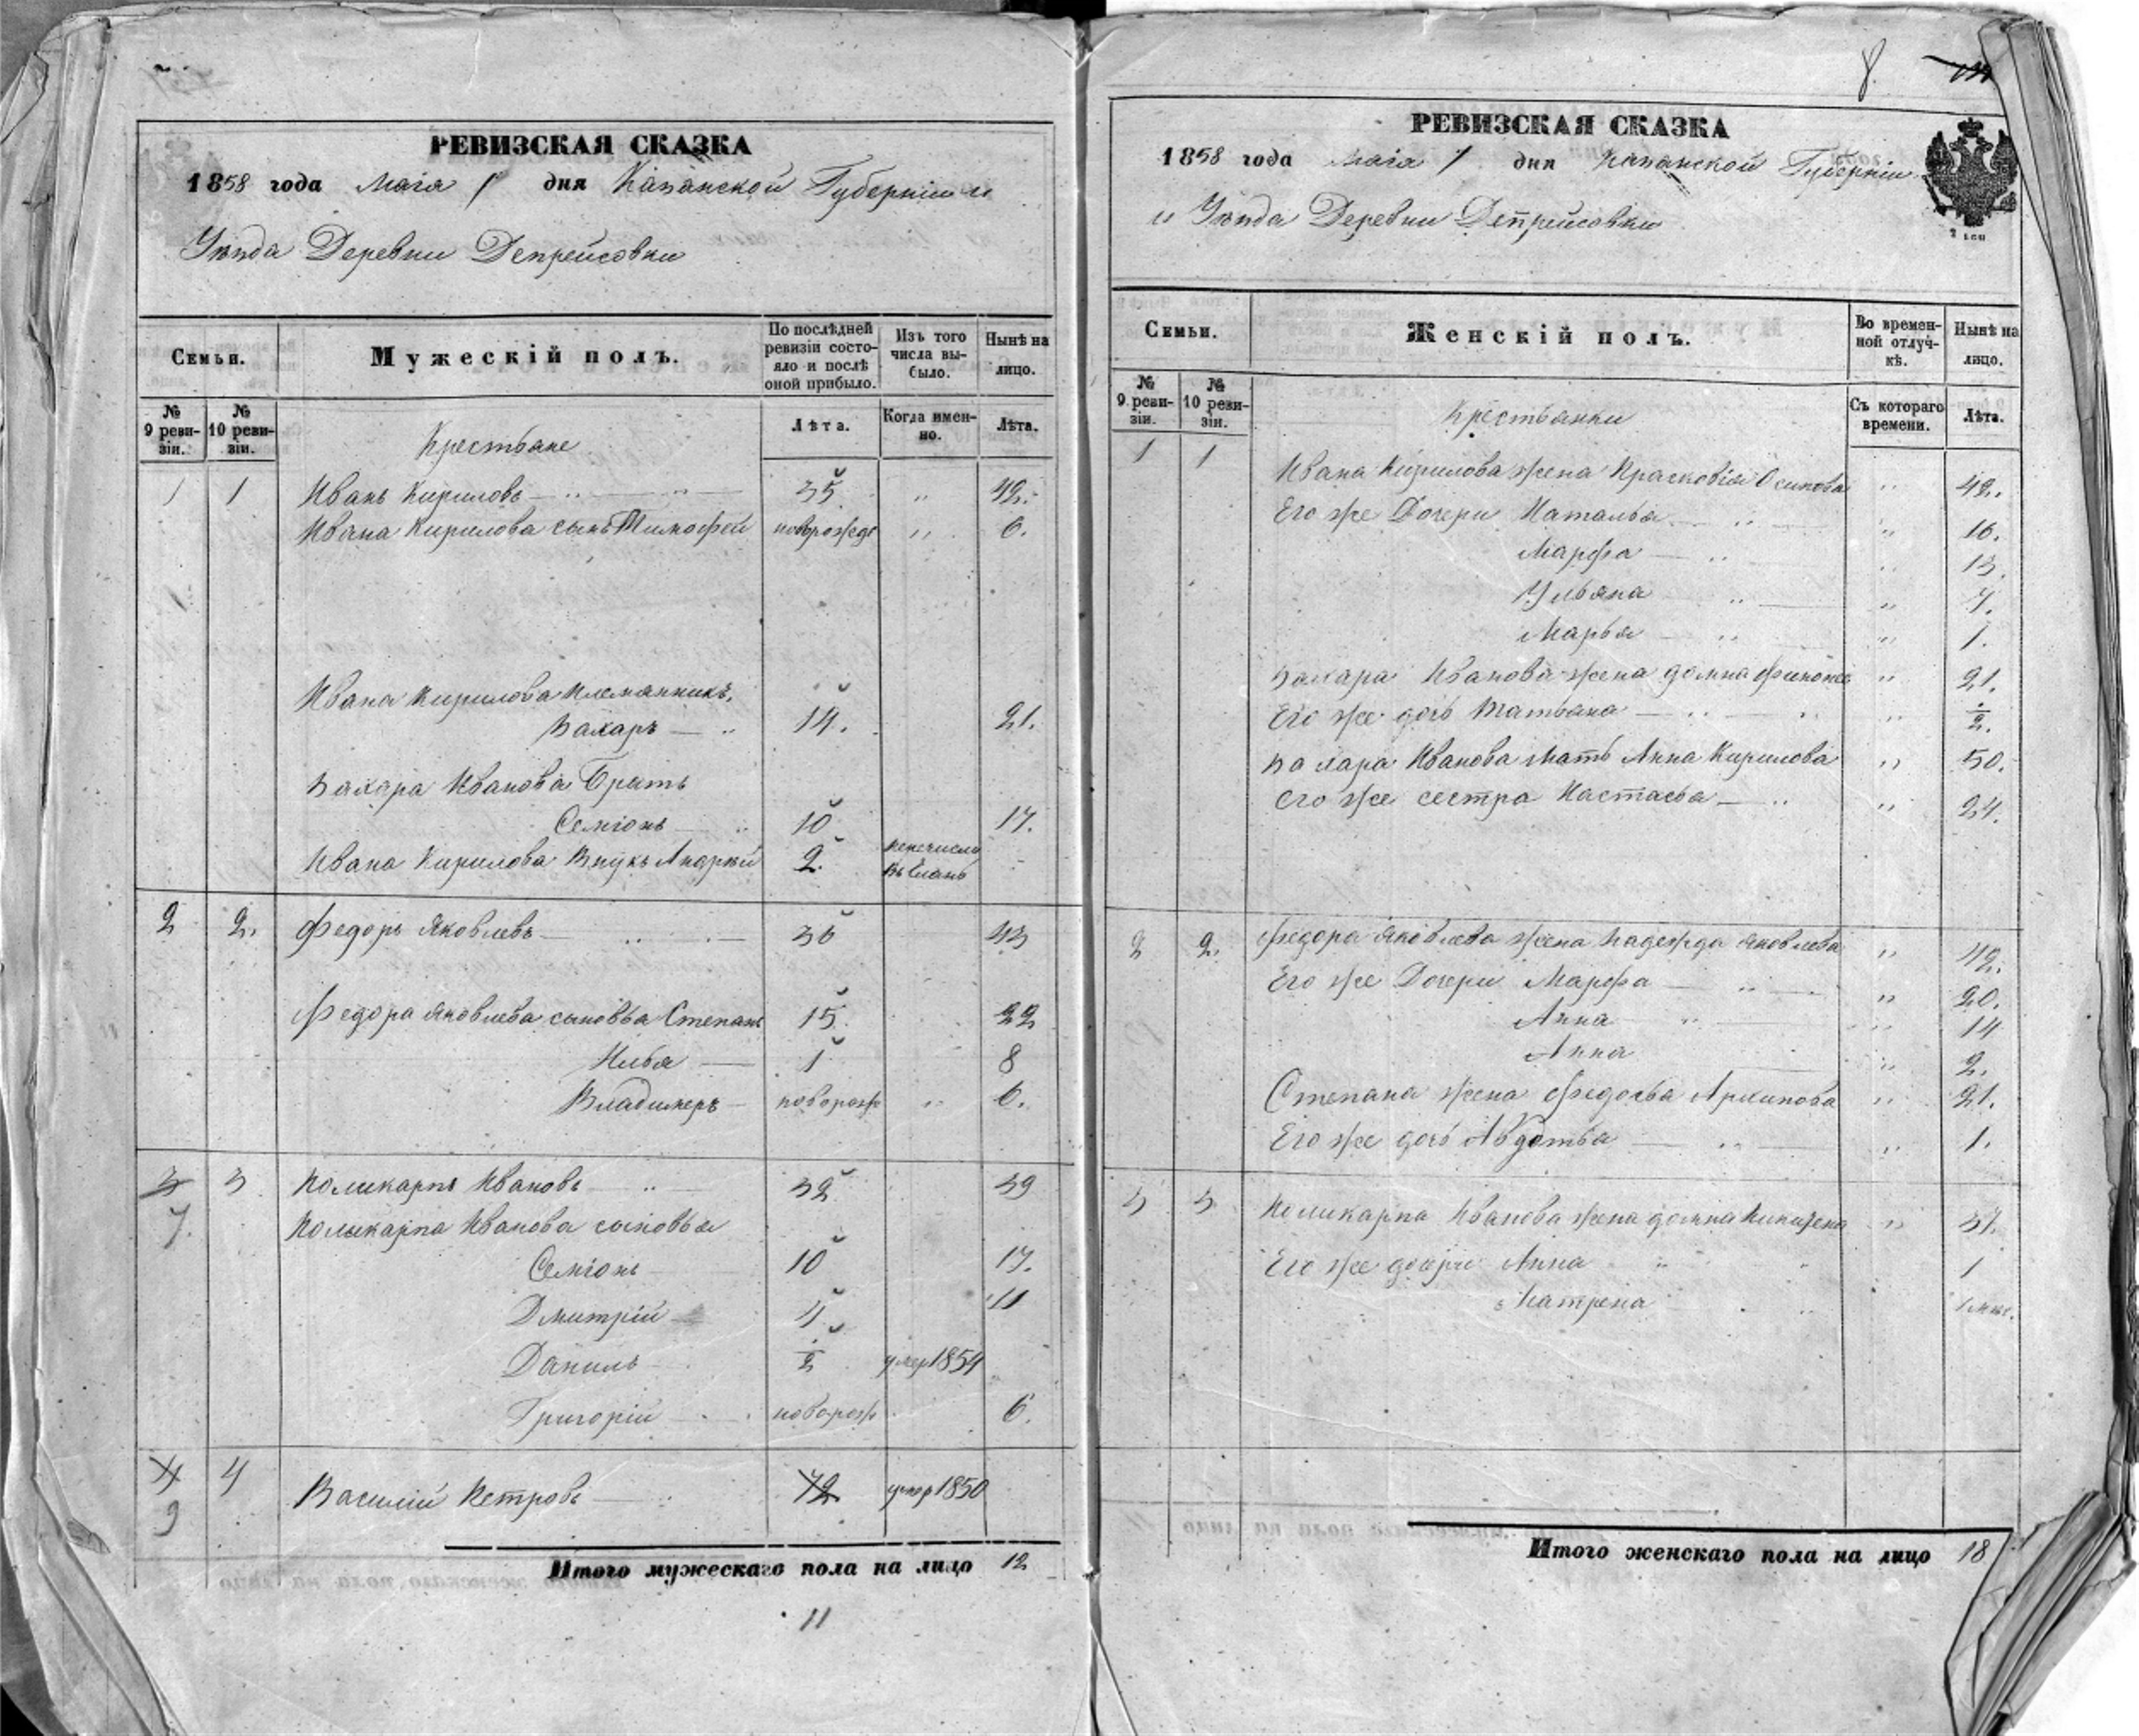 РЕВИЗСКАЯ СКАЗКА
1858 года Маія 1 дня Казанской Губерніи и
Уѣзда Деревни Депрейсовки
Семьи.
Мужескій полъ.
По послѣдней ревизіи состояло и послѣ оной прибыло.
Изъ того числа выбыло.
Нынѣ на лицо.
№ 9 ревизіи.
№ 10 ревизіи.
Крестьяне
Лѣта.
Когда именно.
Лѣта.
1 1 Иванъ Кириловъ 35 " 42.
Ивана Кирилова сынъ Тимофей новорожд " 6.
Ивана Кирилова племянникъ,
Захаръ 14. 21.
Захара Иванова Братъ
Семіонъ 10 17.
Ивана Кирилова Внукъ Андрей 2. перечисле
въ Елань
2 2. Федоръ Яковлевъ 36 43
Федора Яковлева сыновья Степанъ 15. 22
Илья 1 8
Владимеръ новорож " 6.
3 3 Поликарпъ Ивановъ 32 39
7. Поликарпа Иванова сыновья
Семіонъ 10 17.
Дмитрій 4 11
Данилъ ½ умер 1854
Григорій новорож 6.
4 4 Василій Петровъ 72 умер 1850
9
Итого мужескаго пола на лицо 12
11
8.
РЕВИЗСКАЯ СКАЗКА
1858 года Маія 1 дня Казанской Губерніи
и Уѣзда Деревни Депрейсовки
Семьи.
Женскій полъ.
Во временной отлучкѣ.
Нынѣ на лицо.
№ 9 ревизіи.
№ 10 ревизіи.
Крестьянки
Съ котораго времени.
Лѣта.
1 1 Ивана Кирилова жена Прасковія Осипова " 42.
Его же Дочери Наталья " 16.
Марфа " 13.
Ульяна " 7.
Марья " 1.
Захара Иванова жена домна " 21.
Его же дочь Татьяна " ½.
Захара Иванова Мать Анна Кирилова " 50.
его же сестра Настасья " 24.
2 2. Федора Яковлева жена Надежда Яковлева " 42.
Его же Дочери Марфа " 20.
Анна " 14
Анна " 2.
Степана жена Федосья Архипова " 21.
Его же дочь Авдотья " 1.
3 3 Поликарпа Иванова жена домна " 37.
Его же дочери Анна 1
Матрена
Итого женскаго пола на лицо 18